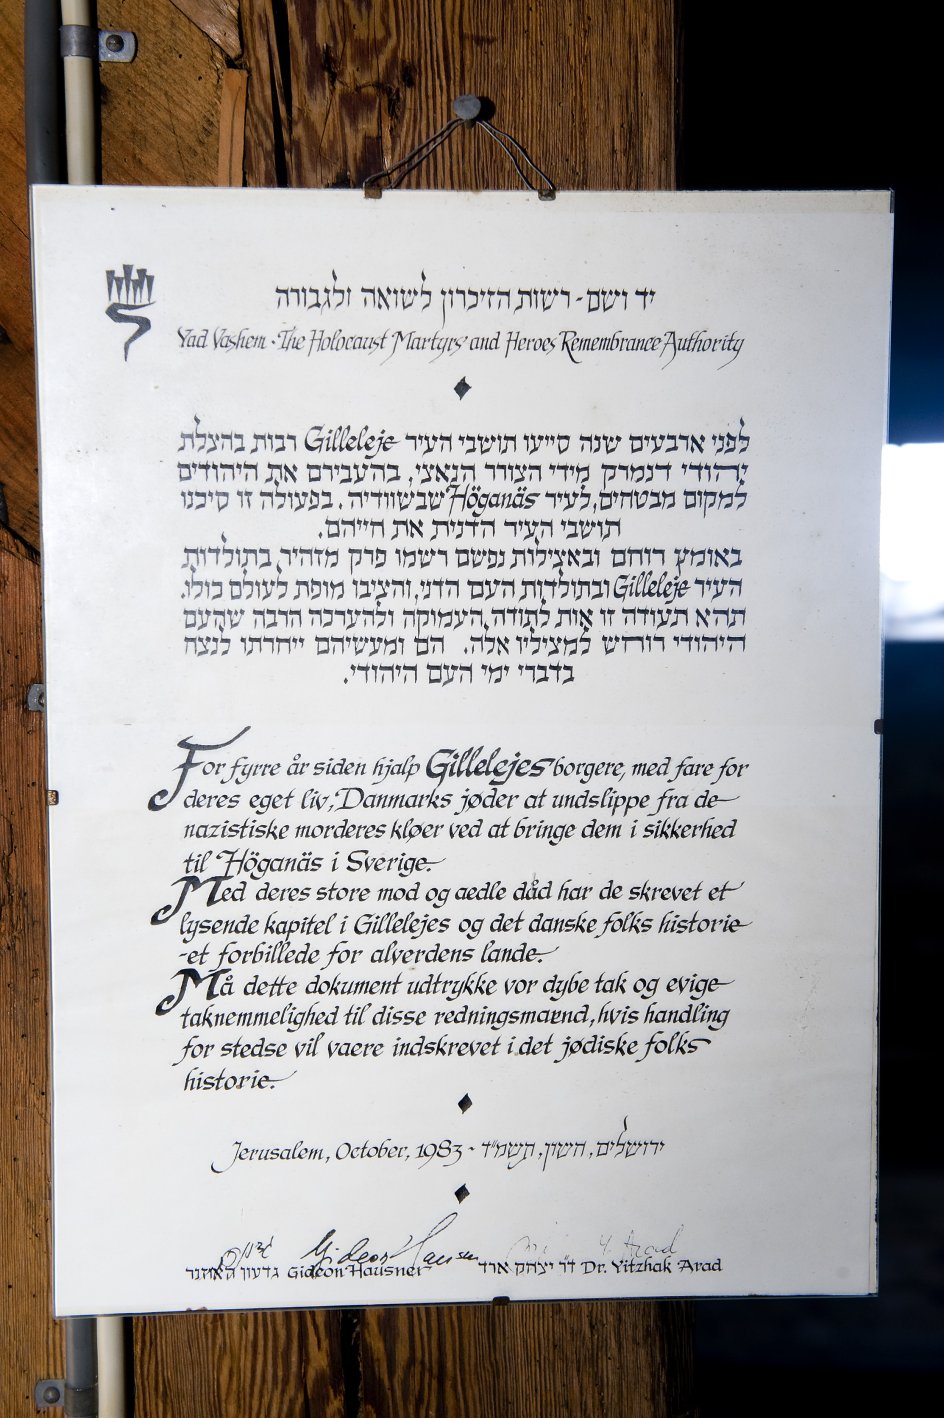 יד ושם - רשות הזיכרון לשואה ולגבורה
Yad Vashem · The Holocaust Martyrs' and Heroes Remembrance Authority
לפני ארבעים שנה סייעו תושבי העיר Gilleleje רבות בהצלת
יהודי דנמרק מידי הצורר הנאצי, בהעבירם את היהודים
למקום מבטחים, לעיר Höganäs שבשוודיה. בפעולה זו סיכנו
תושבי העיר הדנית את חייהם.
באומץ רוחם ובאצילות נפשם רשמו פרק מזהיר בתולדות
העיר Gilleleje ובתולדות העם הדני, והציבו מופת לעולם כולו.
תהא תעודה זו אות לתודה העמוקה ולהערכה הרבה שהעם
היהודי רוחש למציליו אלה. הם ומעשיהם ייחרתו לנצח
בדברי ימי העם היהודי.
For fyrre år siden hjalp Gillelejes borgere, med fare for
deres eget liv, Danmarks jøder at undslippe fra de
nazistiske morderes kløer ved at bringe dem i sikkerhed
til Höganäs i Sverige.
Med deres store mod og aedle dåd har de skrevet et
lysende kapitel i Gillelejes og det danske folks historie
- et forbillede for alverdens lande.
Må dette dokument udtrykke vor dybe tak og evige
taknemmelighed til disse redningsmaend, hvis handling
for stedse vil vaere indskrevet i det jødiske folks
historie.
Jerusalem, October, 1983 · ירושלים, חשון, תשמ"ד
Gideon Hausner Y. Arad
גדעון האוזנר Gideon Hausner ד"ר יצחק ארד Dr. Yitzhak Arad